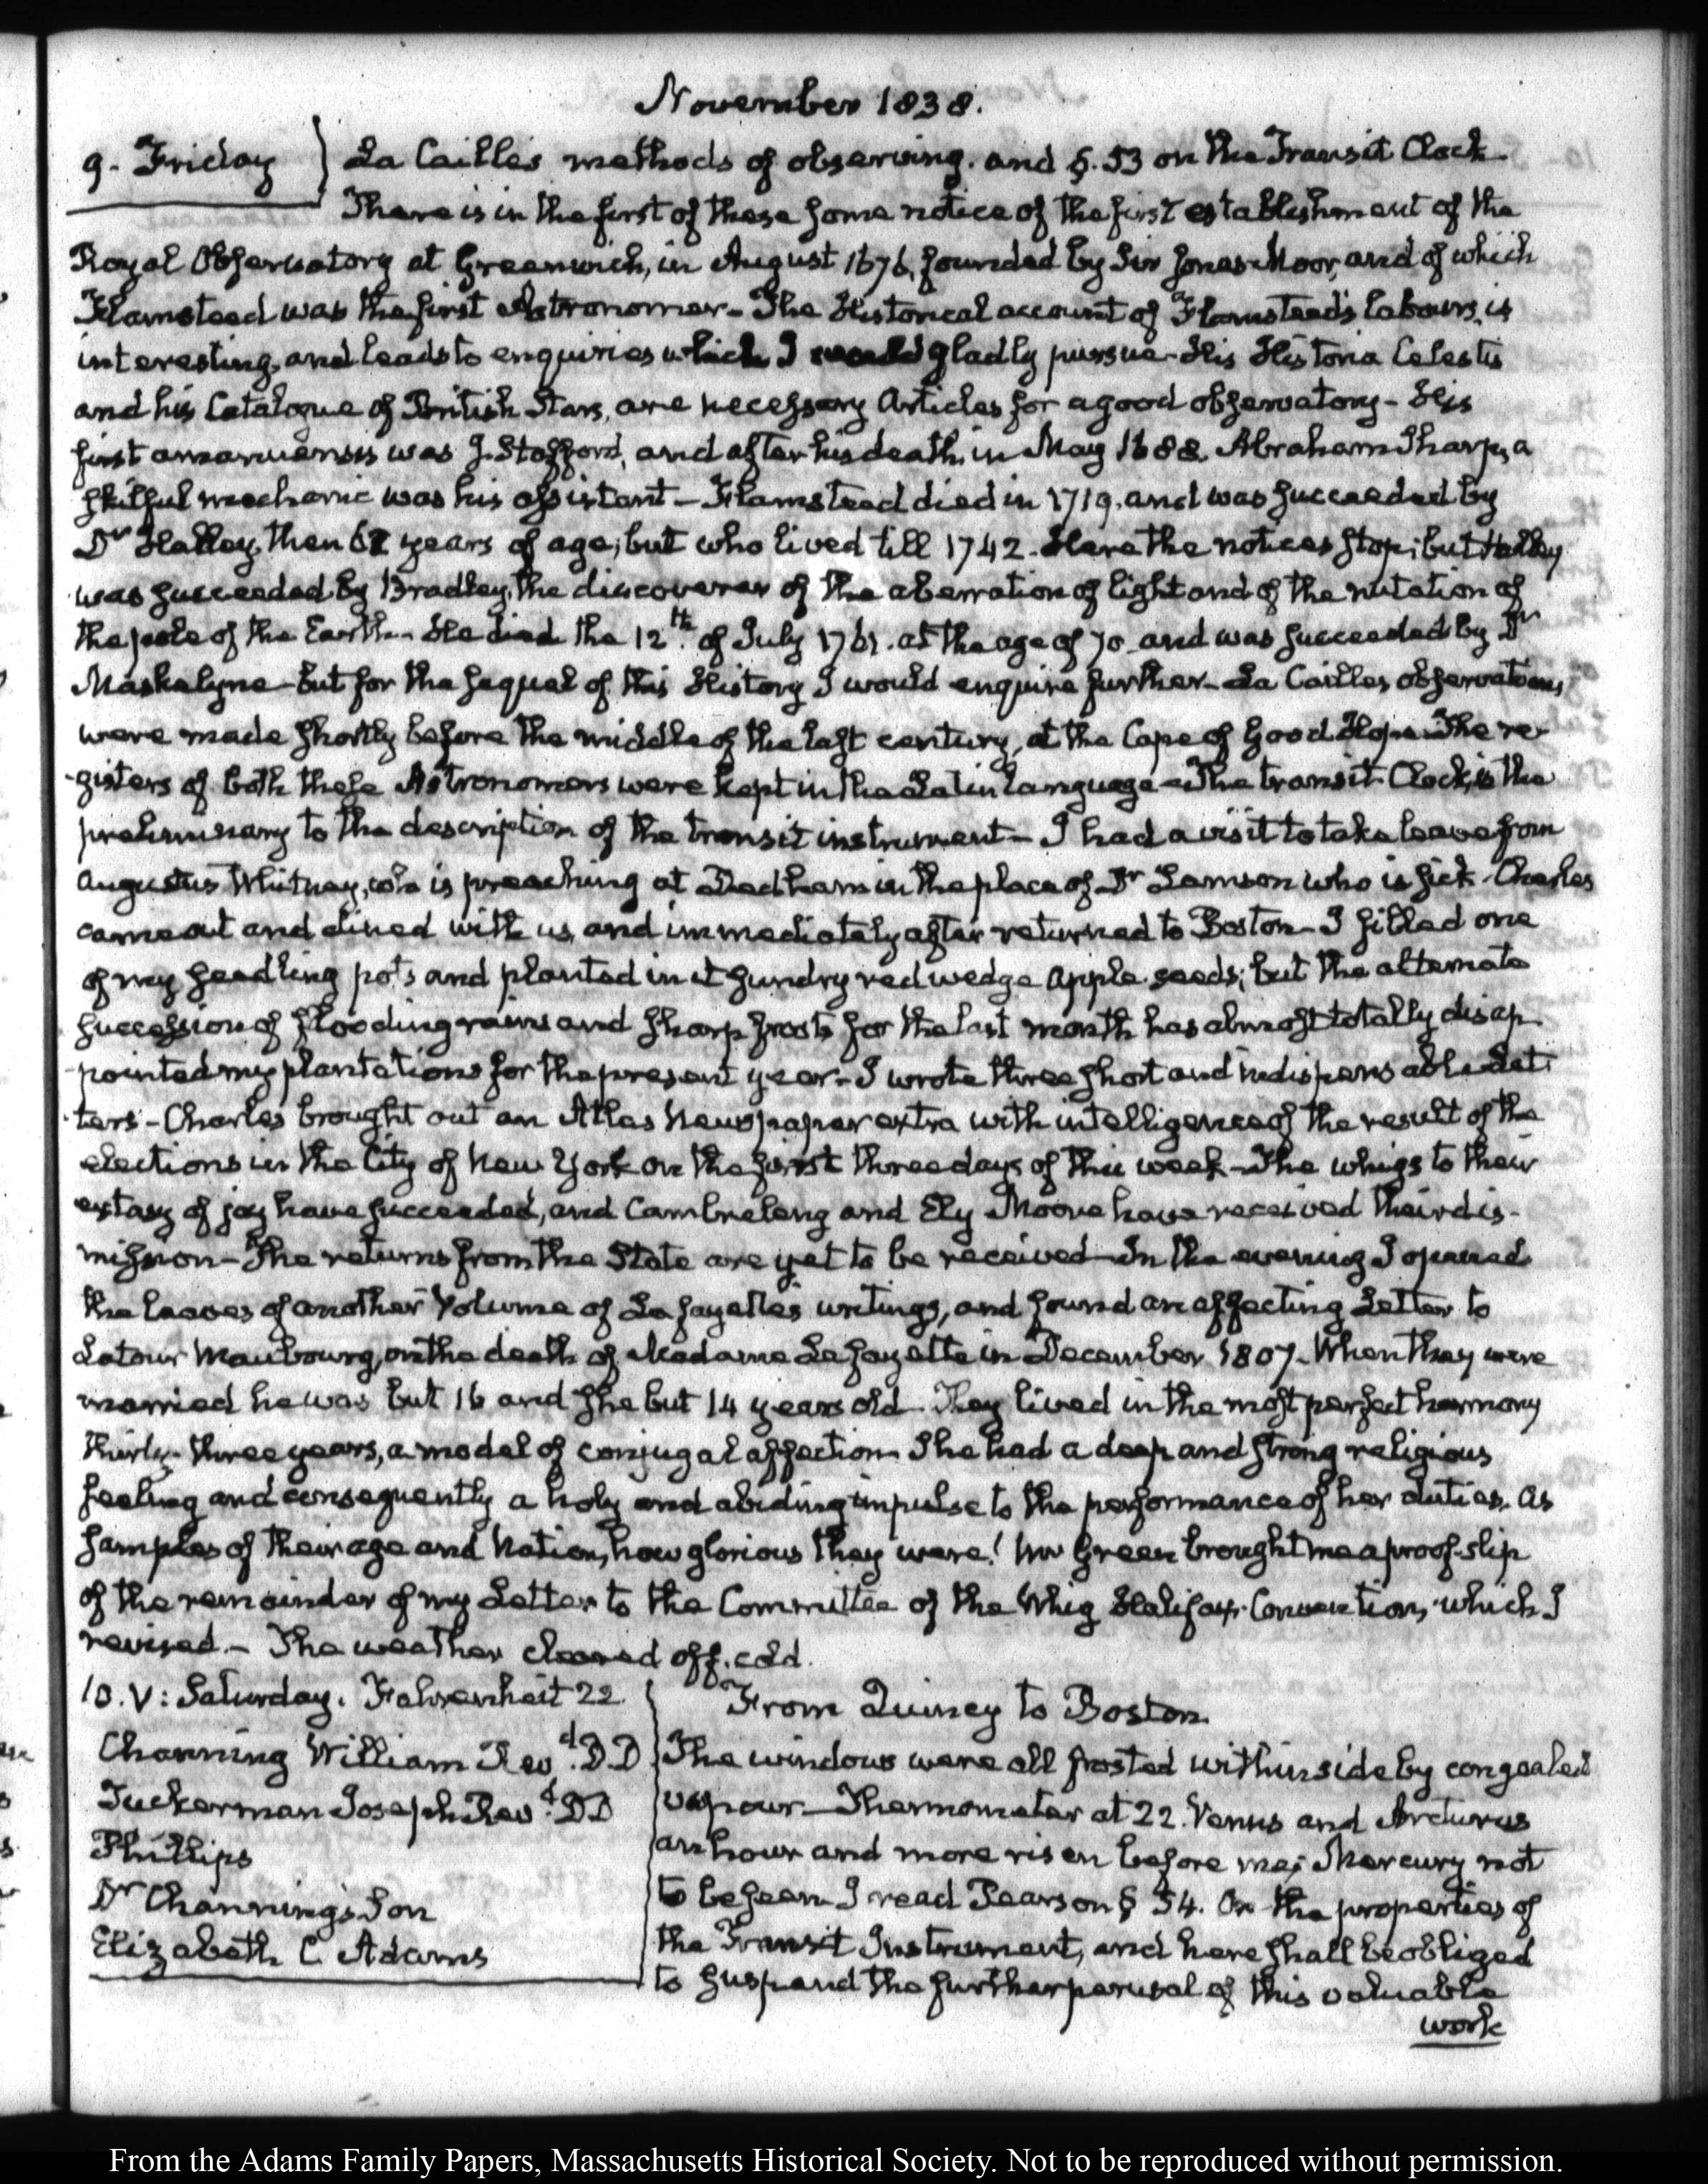 November 1838.
9. Friday
La Caille's methods of observing. and §. 53 on the Transit Clock.
There is in the first of these some notice of the first establishment of the
Royal Observatory at Greenwich, in August 1676, founded by Sir Jonas Moor, and of which
Flamstead was the first Astronomer - The Historical account of Flamstead's labours, is
interesting, and leads to enquiries which I would gladly pursue - His Historia Celestis
and his Catalogue of British Stars, are necessary Articles for a good observatory - His
first amanuensis was J. Stafford, and after his death in May 1688. Abraham Sharp, a
skilful mechanic was his assistant - Flamstead died in 1719. and was succeeded by
Dr Halley, then 62 years of age; but who lived till 1742 - Here the notices stop; but Halley
was succeeded by Bradley, the discoverer of the aberration of light and of the nutation of
the pole of the Earth - He died the 12th. of July 1761. at the age of 70 and was succeeded by Dr
Maskalyne - but for the sequel of this History I would enquire further - La Cailles observations,
were made shortly before the middle of the last century, at the Cape of Good Hope - The re-
-gisters of both these Astronomers were kept in the Latin language - The transit Clock, is the
preliminary to the description of the transit instrument - I had a visit to take leave from
Augustus Whitney, who is preaching at Dedham in the place of Dr Lamson who is sick - Charles
came out and dined with us, and immediately after returned to Boston - I filled one
of my seedling pots and planted in it sundry red wedge apple seeds; but the alternate
succession of flooding rains and sharp frosts for the last month has almost totally disap-
-pointed my plantations for the present year - I wrote three short and indispensable Let-
-ters - Charles brought out an Atlas Newspaper extra with intelligence of the result of the
elections in the City of New York on the first three days of this week - The whigs to their
extasy of joy have succeeded, and Cambreleng and Ely Moore have received their dis-
mission - The returns from the State are yet to be received - In the evening I opened
the leaves of another Volume of La Fayette's writings, and found an affecting Letter to
Latour Maubourg, on the death of Madame La Fayette in December 1807 - When they were
married he was but 16 and she but 14 years old - They lived in the most perfect harmony
thirty-three years, a model of conjugal affection - She had a deep and strong religious
feeling and consequently a holy and abiding impulse to the performance of her duties. As
samples of their age and Nation, how glorious they were! Mr Green brought me a proof-slip
of the remainder of my Letter to the Committee of the Whig Halifax Convention, which I
revised - The weather cleared off. cold.
10. V: Saturday. Fahrenheit 22.
Channing William Revd. D.D
Tuckerman Joseph Revd. DD
Phillips
Dr Channing's Son
Elizabeth C Adams
From Quincy to Boston.
The windows were all frosted withinside by congealed
vapour - Thermometer at 22. Venus and Arcturus
an hour and more risen before me; Mercury not
to be seen - I read Pearson § 54. On the properties of
the Transit Instrument, and here shall be obliged
to suspend the further perusal of this valuable
work
From the Adams Family Papers, Massachusetts Historical Society. Not to be reproduced without permission.